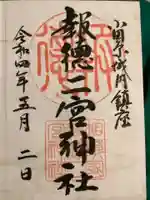 小田原城内鎮座
報徳二宮神社
令和四年五月二日